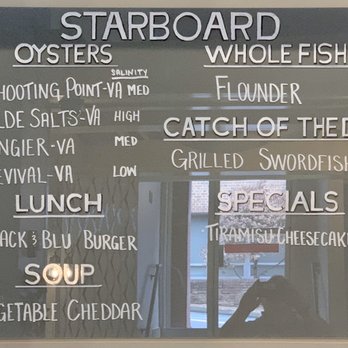 STARBOARD
OYSTERS
SALINITY
HOOTING POINT-VA MED
LDE SALTS-VA HIGH
NGIER-VA MED
EVIVAL-VA LOW
LUNCH
ACK & BLU BURGER
SOUP
GETABLE CHEDDAR
WHOLE FISH
FLOUNDER
CATCH OF THE D
GRILLED SWORDFISH
SPECIALS
TIRAMISU CHEESECAKE